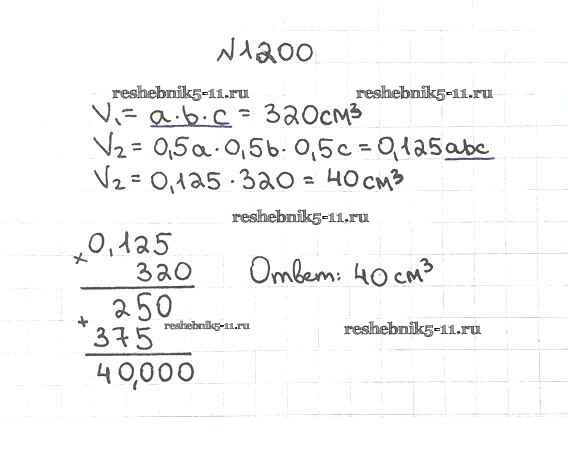 №1200
reshebnik5-11.ru reshebnik5-11.ru
V₁ = a·b·c = 320см³
V₂ = 0,5a·0,5b·0,5c = 0,125abc
V₂ = 0,125·320 = 40см³
reshebnik5-11.ru
× 0,125
320 Ответ: 40см³
250
+ 375 reshebnik5-11.ru reshebnik5-11.ru
40,000